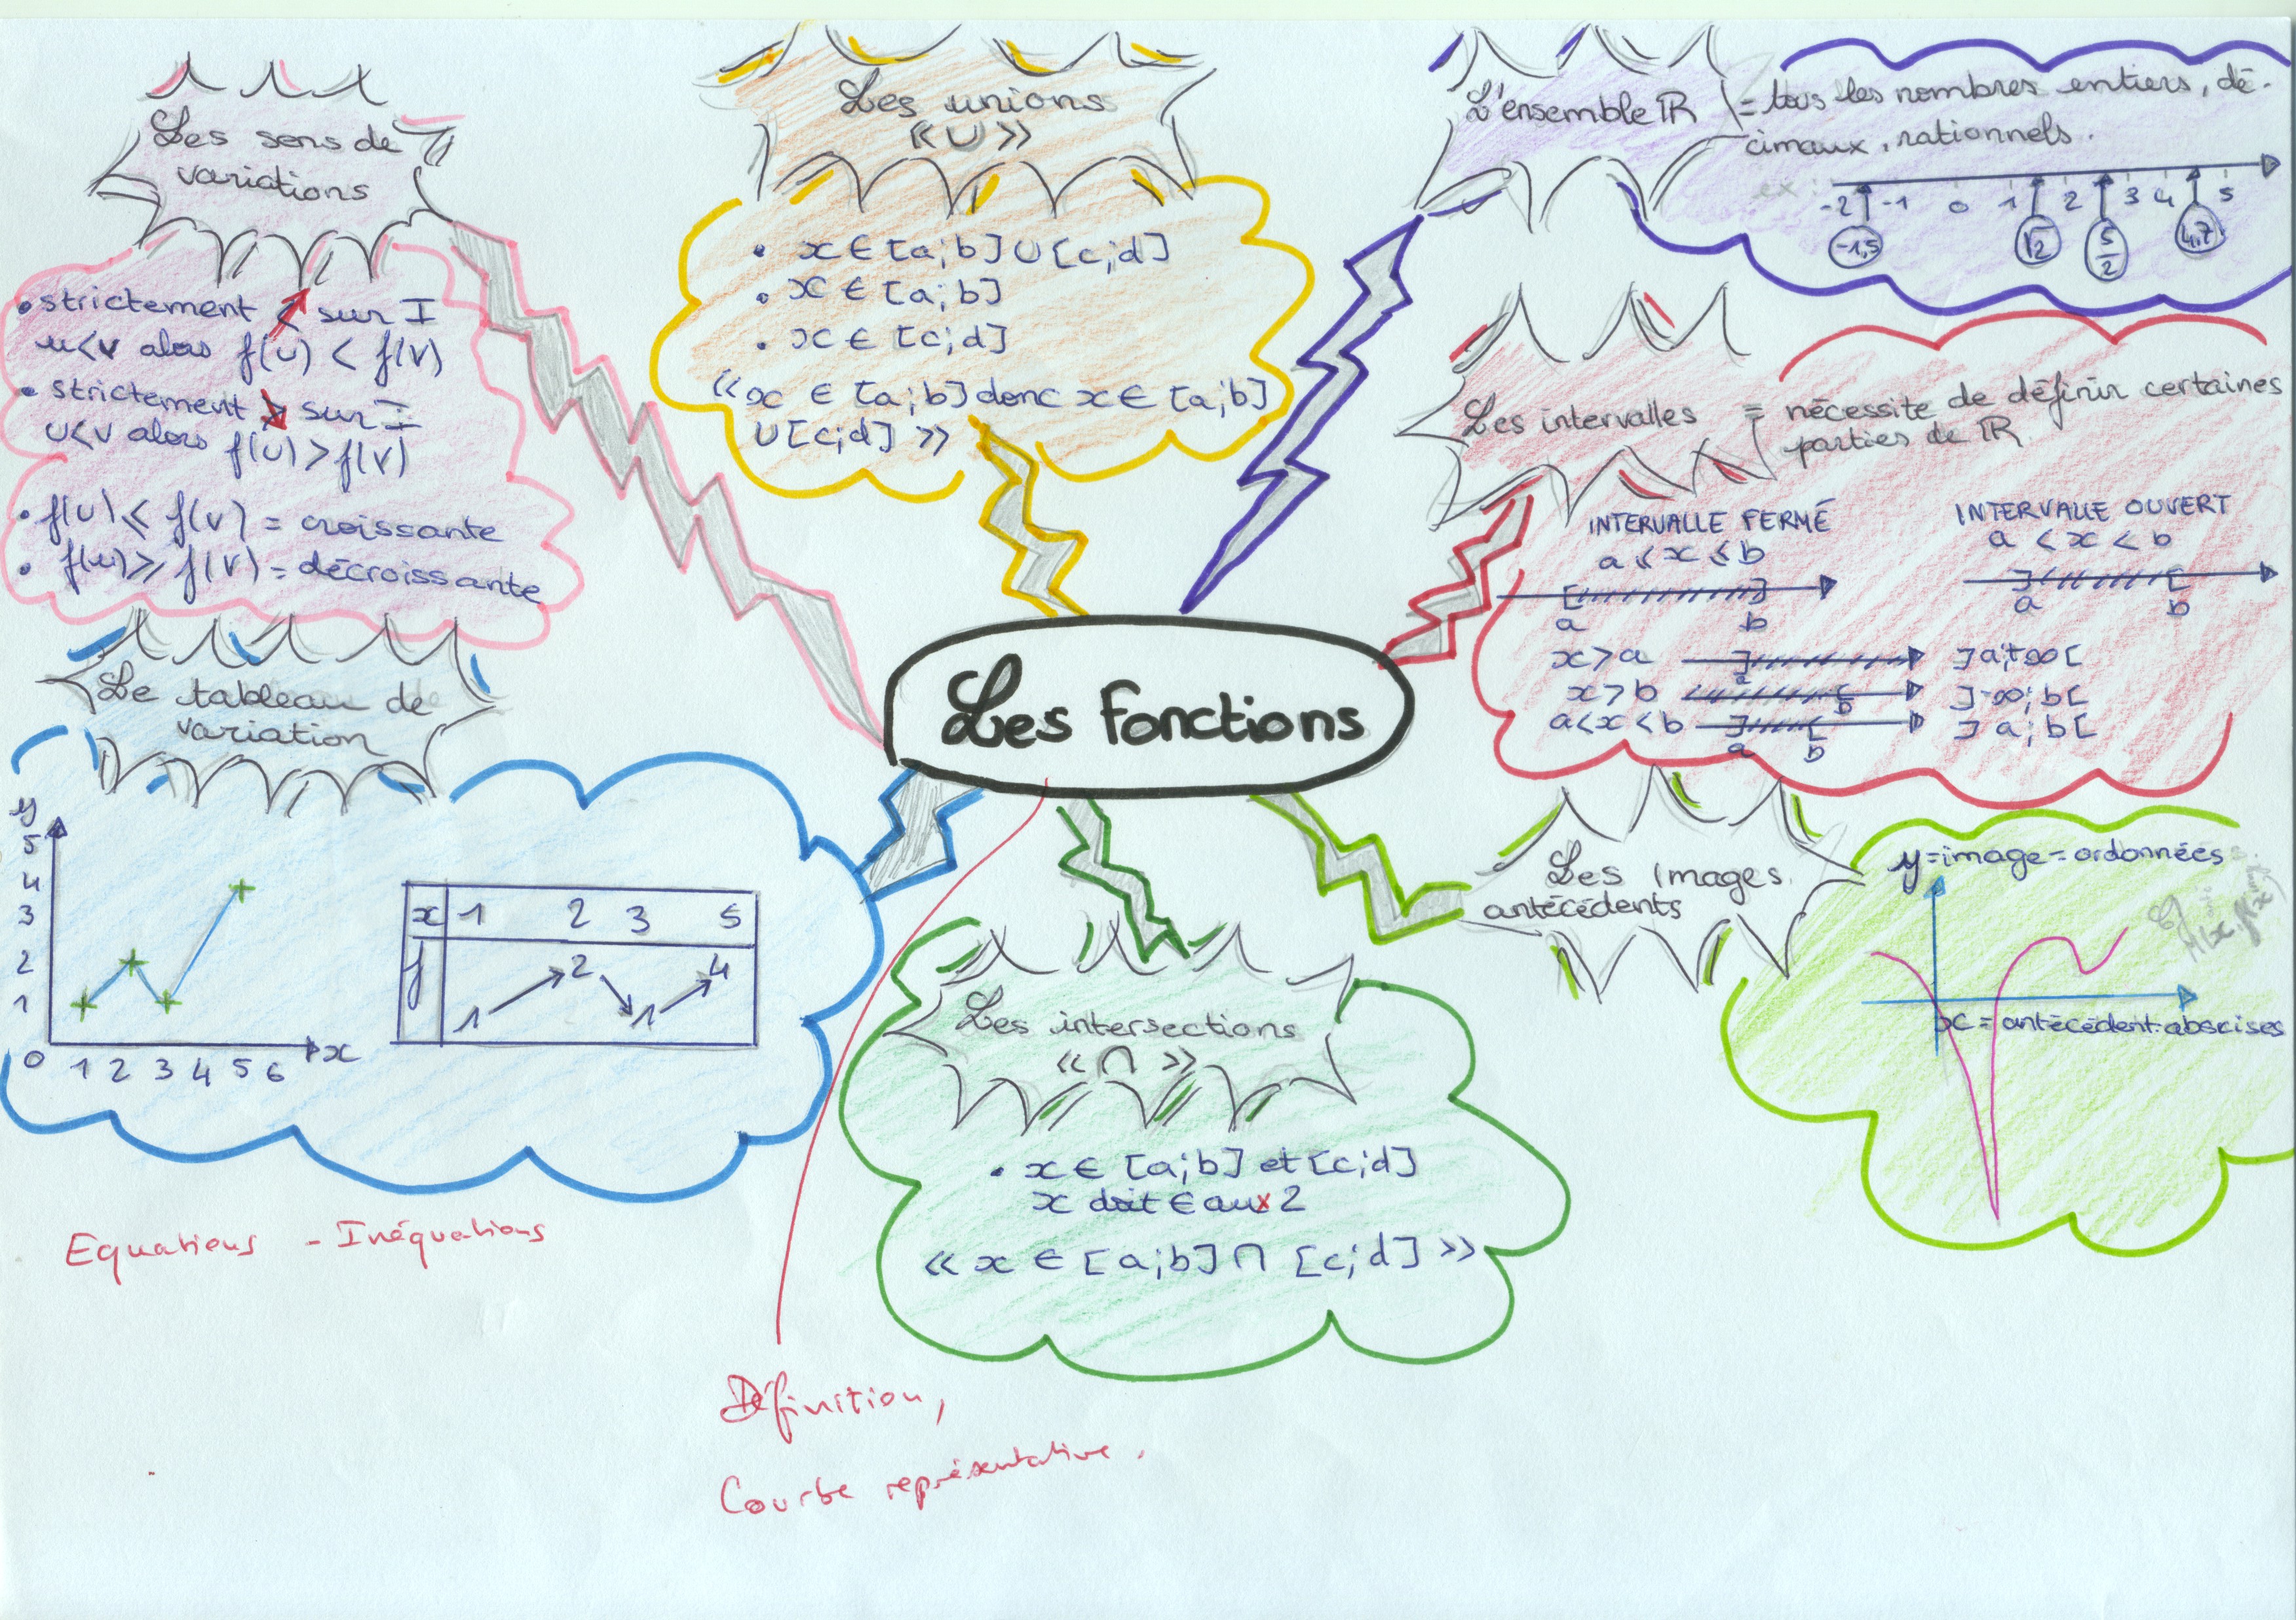 Les fonctions
Les sens de
variations
• strictement < sur I
u<v alors f(u) < f(v)
• strictement > sur I
u<v alors f(u)>f(v)
• f(u) ⩽ f(v) = croissante
• f(u) ⩾ f(v) = décroissante
Les unions
« ∪ »
• x ∈ [a;b] ∪ [c;d]
• x ∈ [a;b]
• x ∈ [c;d]
« x ∈ [a;b] donc x ∈ [a;b]
∪ [c;d] »
L'ensemble ℝ = tous les nombres entiers, dé-
cimaux, rationnels.
ex :
-2 -1 0 1 2 3 4 5
-1,5 √2 5/2 4,7
Les intervalles = nécessite de définir certaines
parties de ℝ
INTERVALLE FERMÉ
a ⩽ x ⩽ b
[ ]
a b
INTERVALLE OUVERT
a < x < b
] [
a b
x > a ] a ]a;+∞[
x > b [ b ]-∞;b[
a<x<b ] [ a b ]a;b[
Le tableau de
variation
y
5
4
3
2
1
0 1 2 3 4 5 6 x
x 1 2 3 5
f 1 2 1 4
Les images
antécédents
y=image=ordonnées
x = antécédent=abscises
Les intersections
« ∩ »
• x ∈ [a;b] et [c;d]
x doit ∈ aux 2
« x ∈ [a;b] ∩ [c;d] »
Equations - Inéquations
Définition,
Courbe représentative.